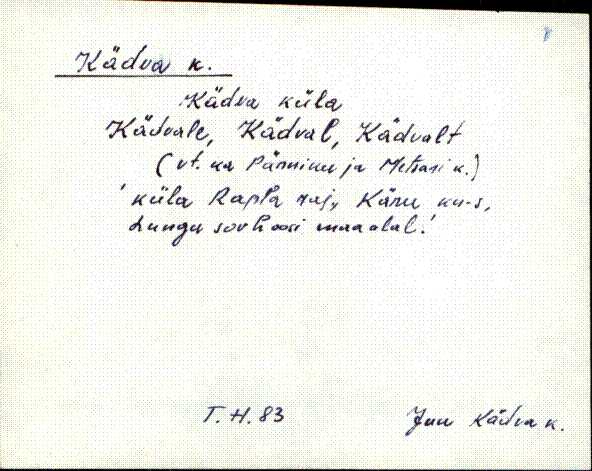 Kädva k.
Kädva küla
Kädvale, Kädval, Kädvalt
(vt. ka Pärniku ja Metsari k.)
'küla Rapla raj., Käru kn-s,
Lungu sovhoosi maaalal.'
T. H. 83
Juu Kädva k.